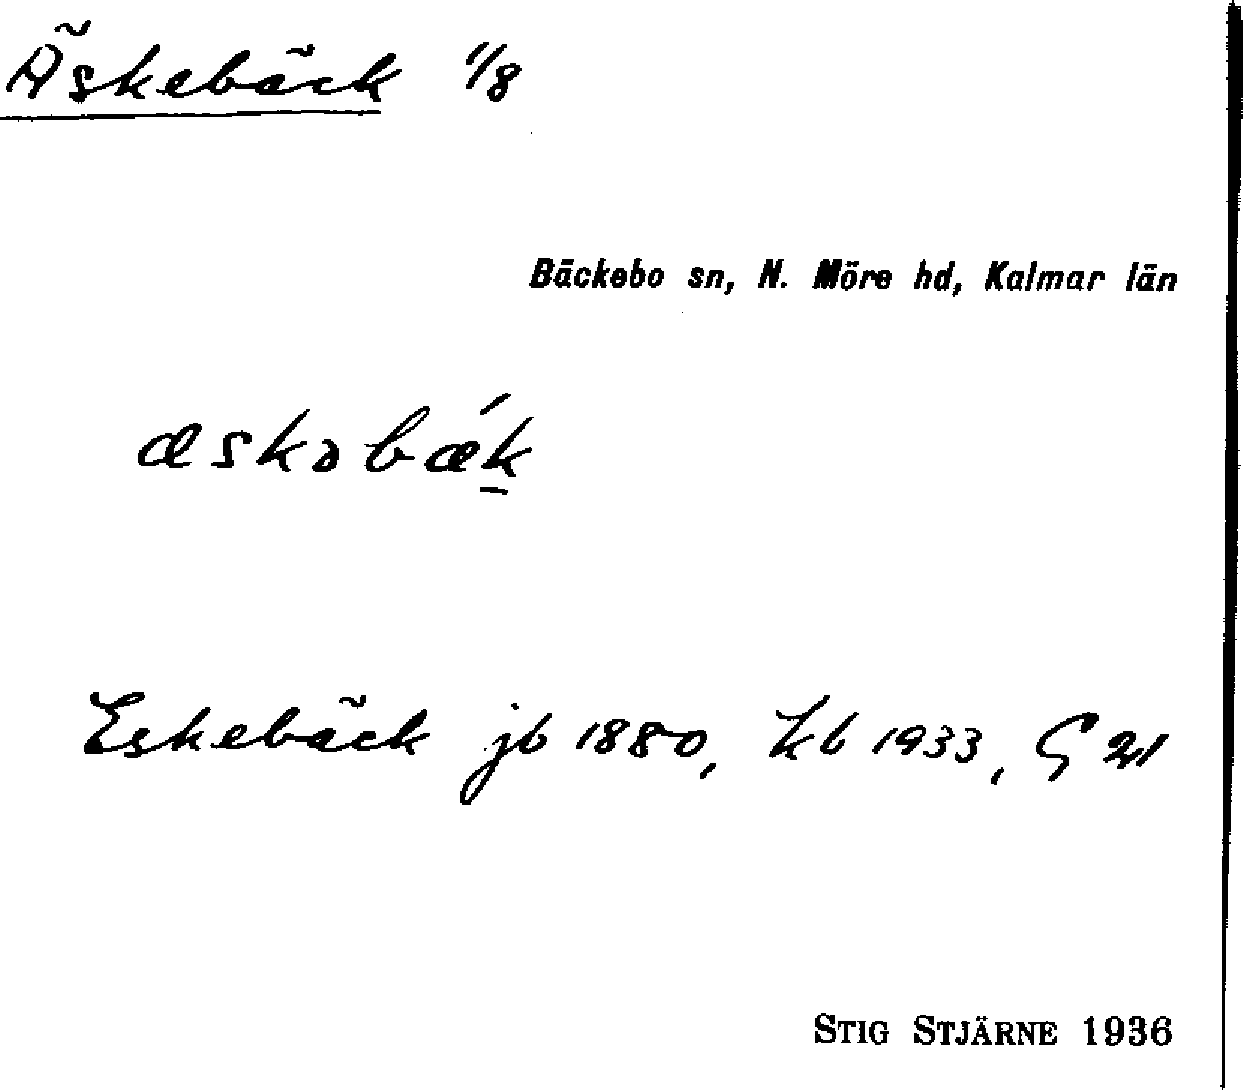 Äskebäck 1/8
Bäckebo sn, N. Möre hd, Kalmar län
æskəbǽk̲
Eskebäck jb 1880, kb 1933, G 21
STIG STJÄRNE 1936